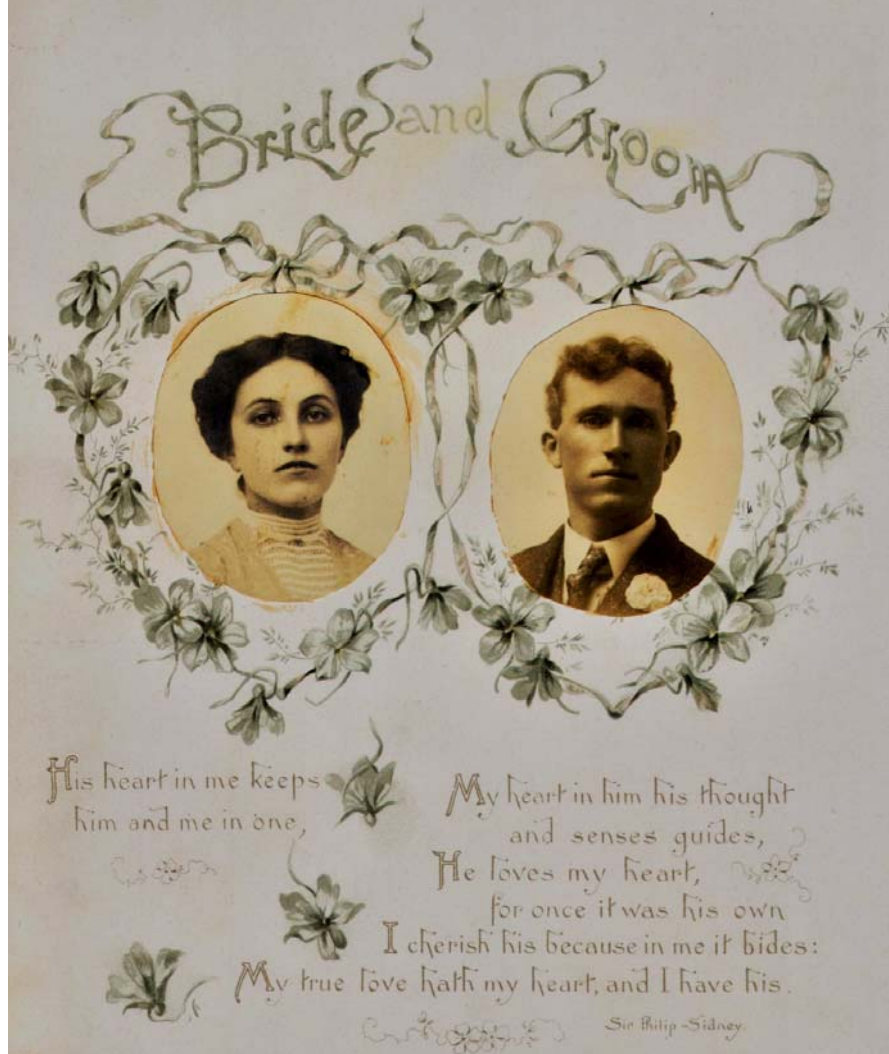 Bride and Groom
His heart in me keeps
him and me in one,
My heart in him his thought
and senses guides,
He loves my heart,
for once it was his own
I cherish his because in me it bides:
My true love hath my heart, and I have his.
Sir Philip-Sidney.